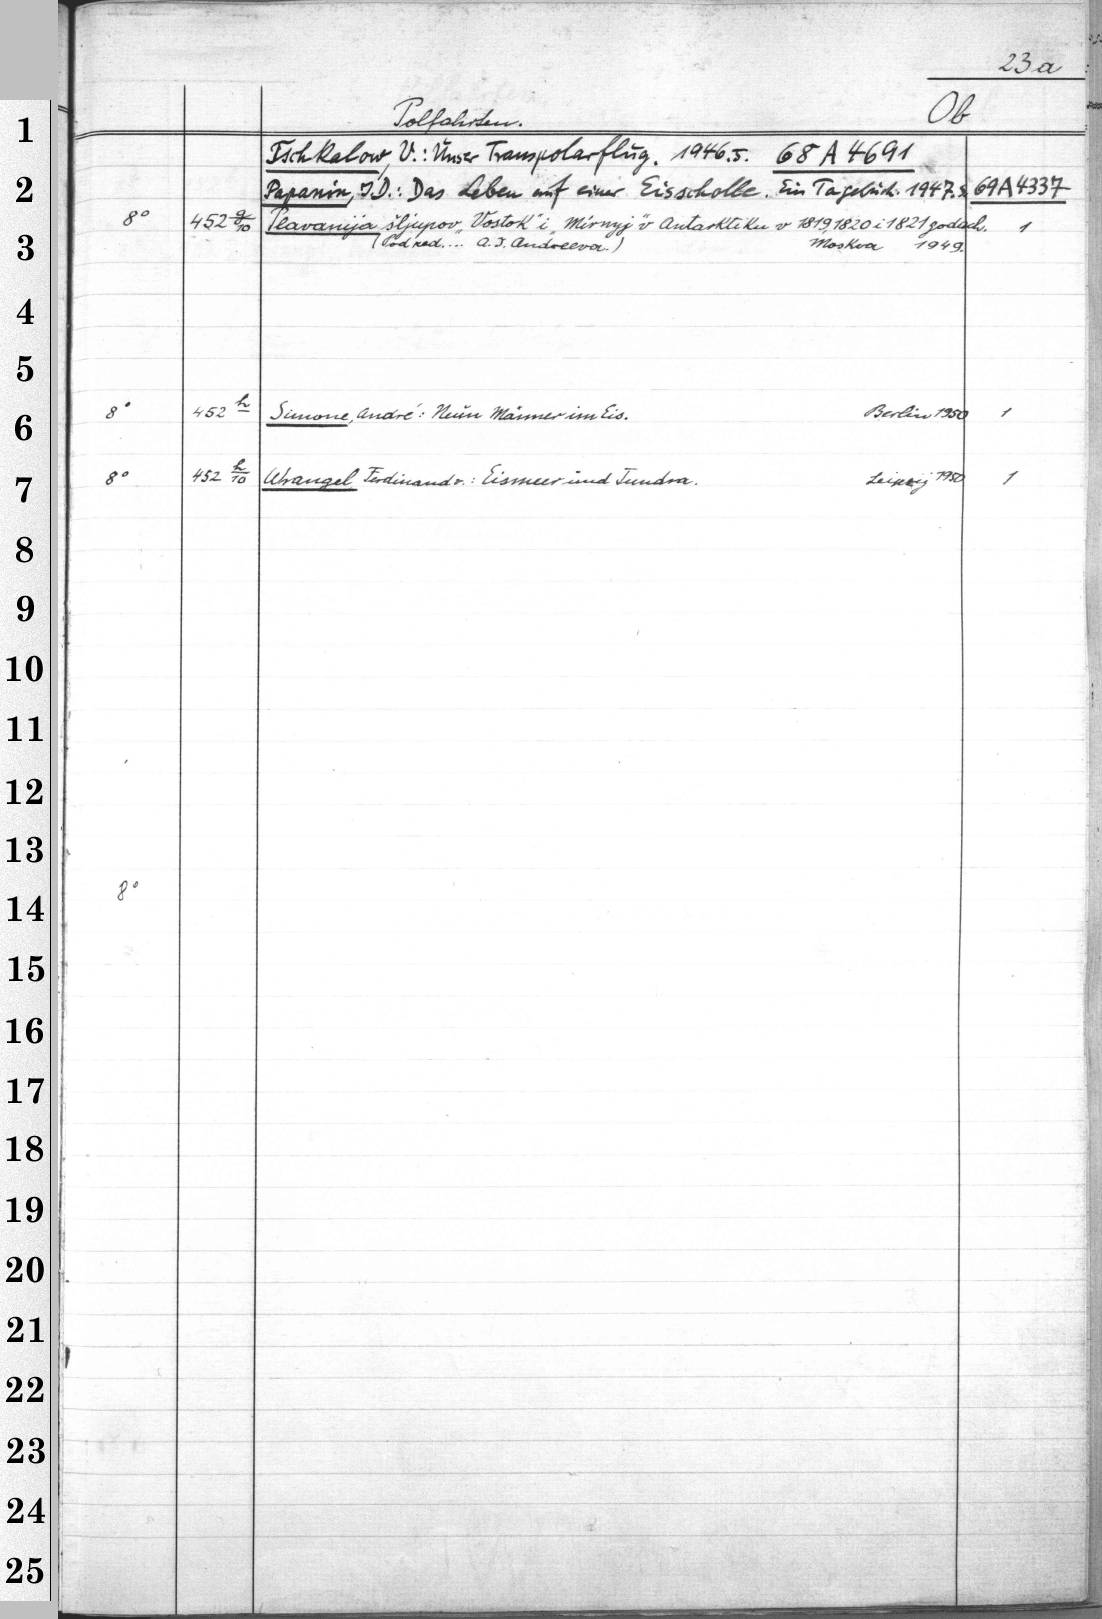 23a
Polfahrten. Ob
Tschkalow, V.: Unser Transpolarflug. 1946.5. 68 A 4691
Papanin, I.D.: Das Leben auf einer Eisscholle. Ein Tagebuch. 1947. 69A4337
8° 452 g/10 Plavanija šljupov „Vostok" i „Mirnyj" v Antarktiku v 1819, 1820 i 1821 godach. 1
(Pod red.... A.I. Andreeva.) Moskva 1949.
8° 452 h Simone, André: Neun Männer im Eis. Berlin 1950 1
8° 452 h/10 Wrangel, Ferdinand v.: Eismeer und Tundra. Leipzig 1950 1
8°
1
2
3
4
5
6
7
8
9
10
11
12
13
14
15
16
17
18
19
20
21
22
23
24
25